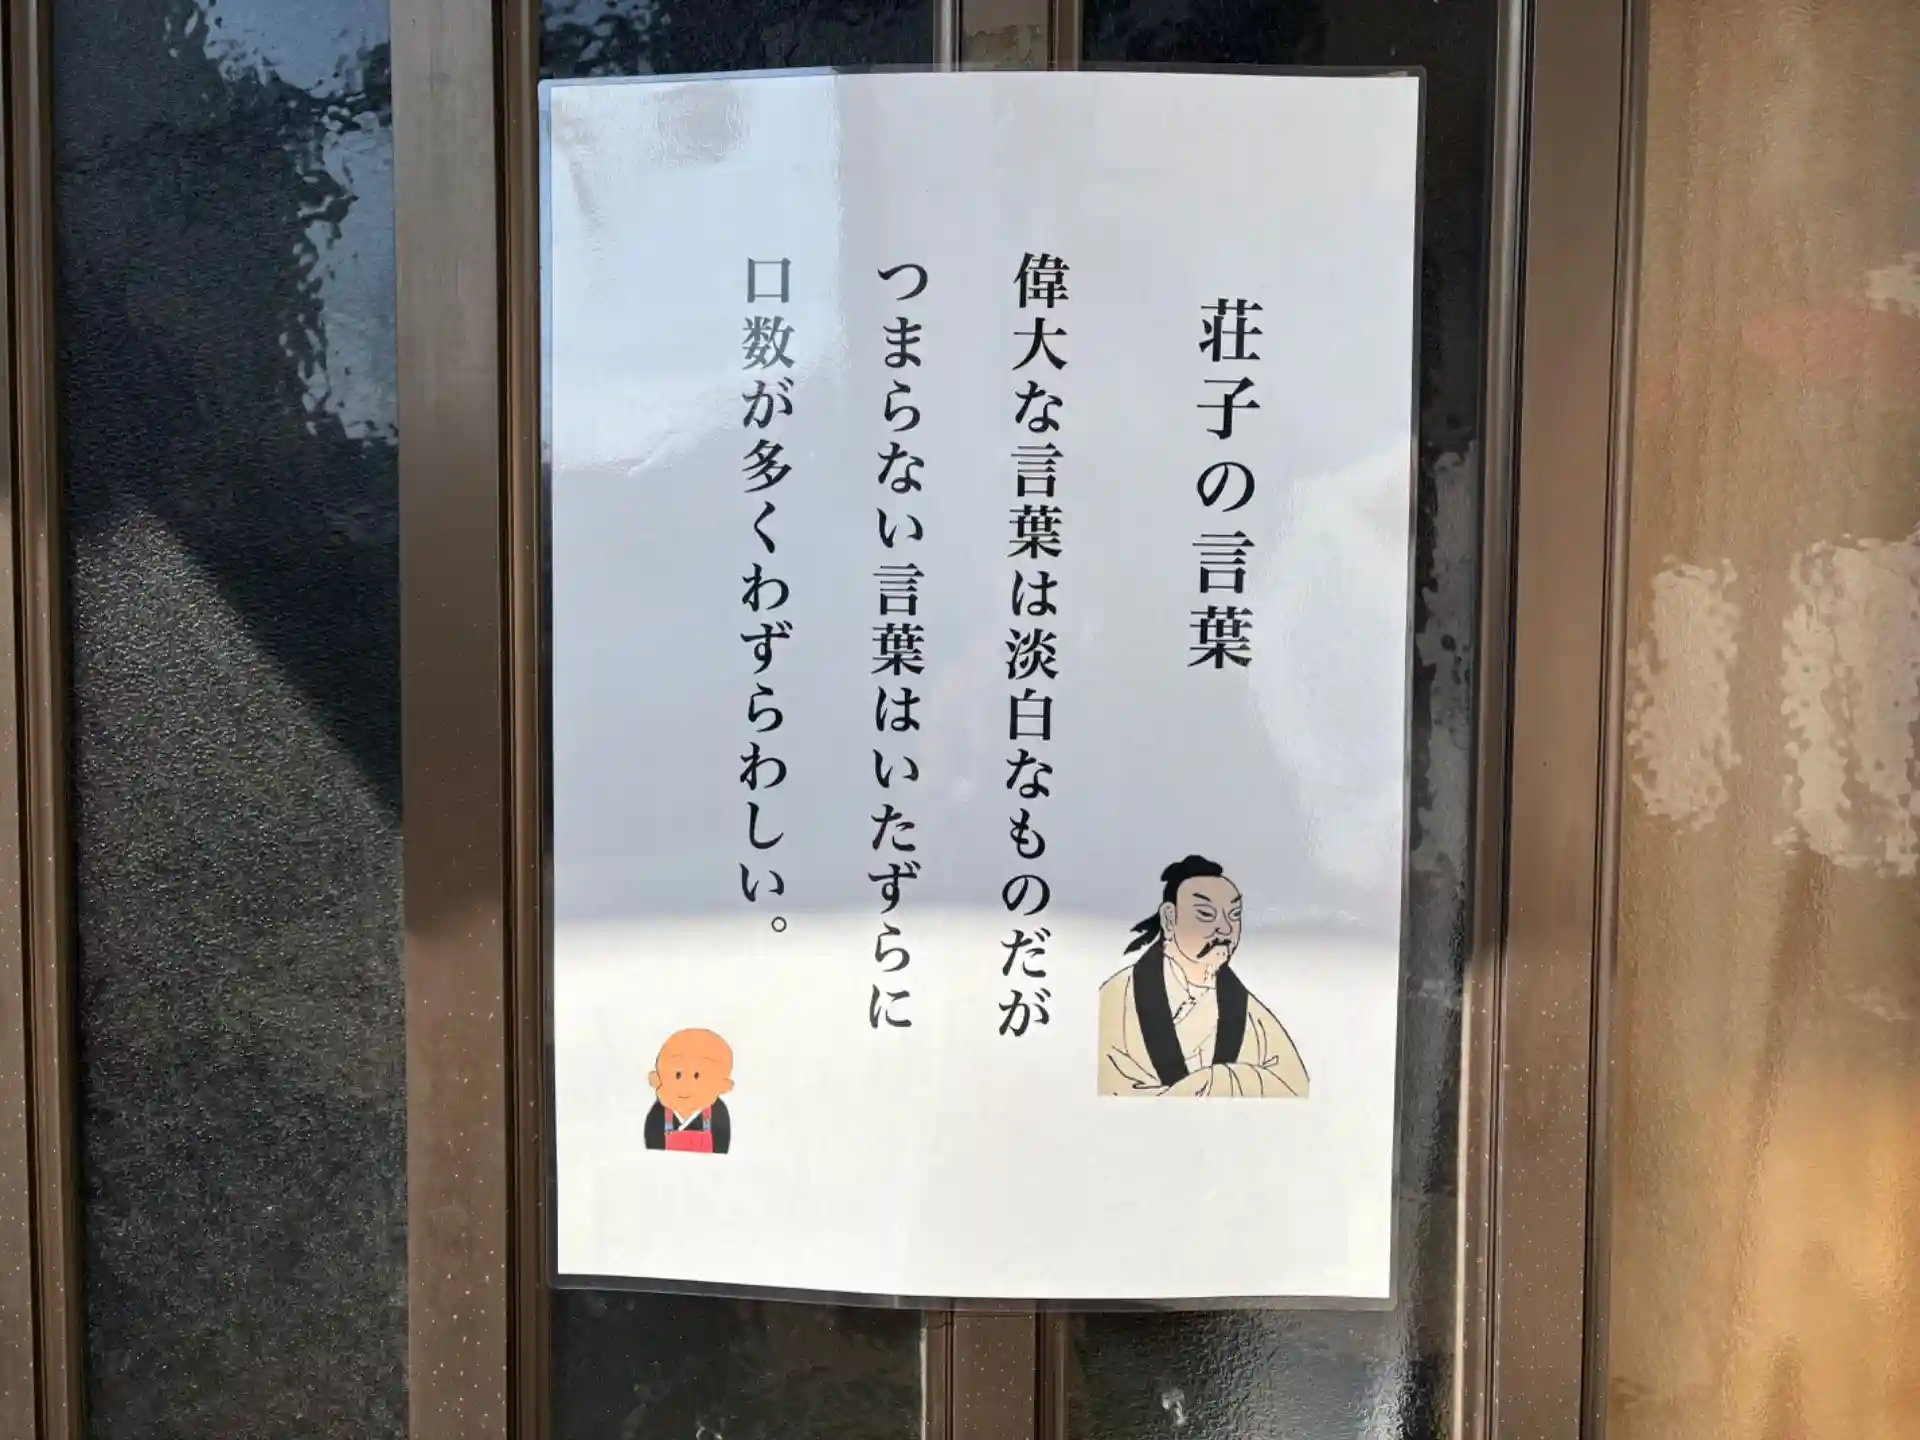 荘子の言葉
偉大な言葉は淡白なものだが
つまらない言葉はいたずらに
口数が多くわずらわしい。